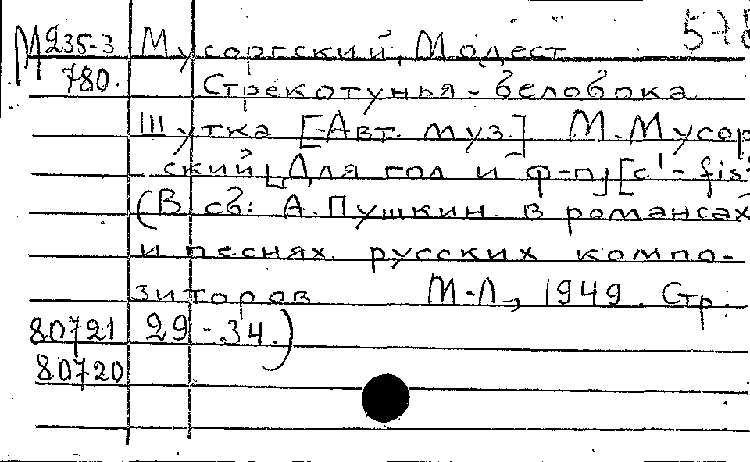 М 235-3 Мусоргский, Модест 578
780. Стрекотунья-белобока
Шутка [Авт. муз.] М. Мусор
ский, Для гол и ф-п, [c'-fis
(В сб: А. Пушкин в романсах
и песнях русских компо-
зиторов М-Л, 1949. Стр.
80721 29-34.)
80720